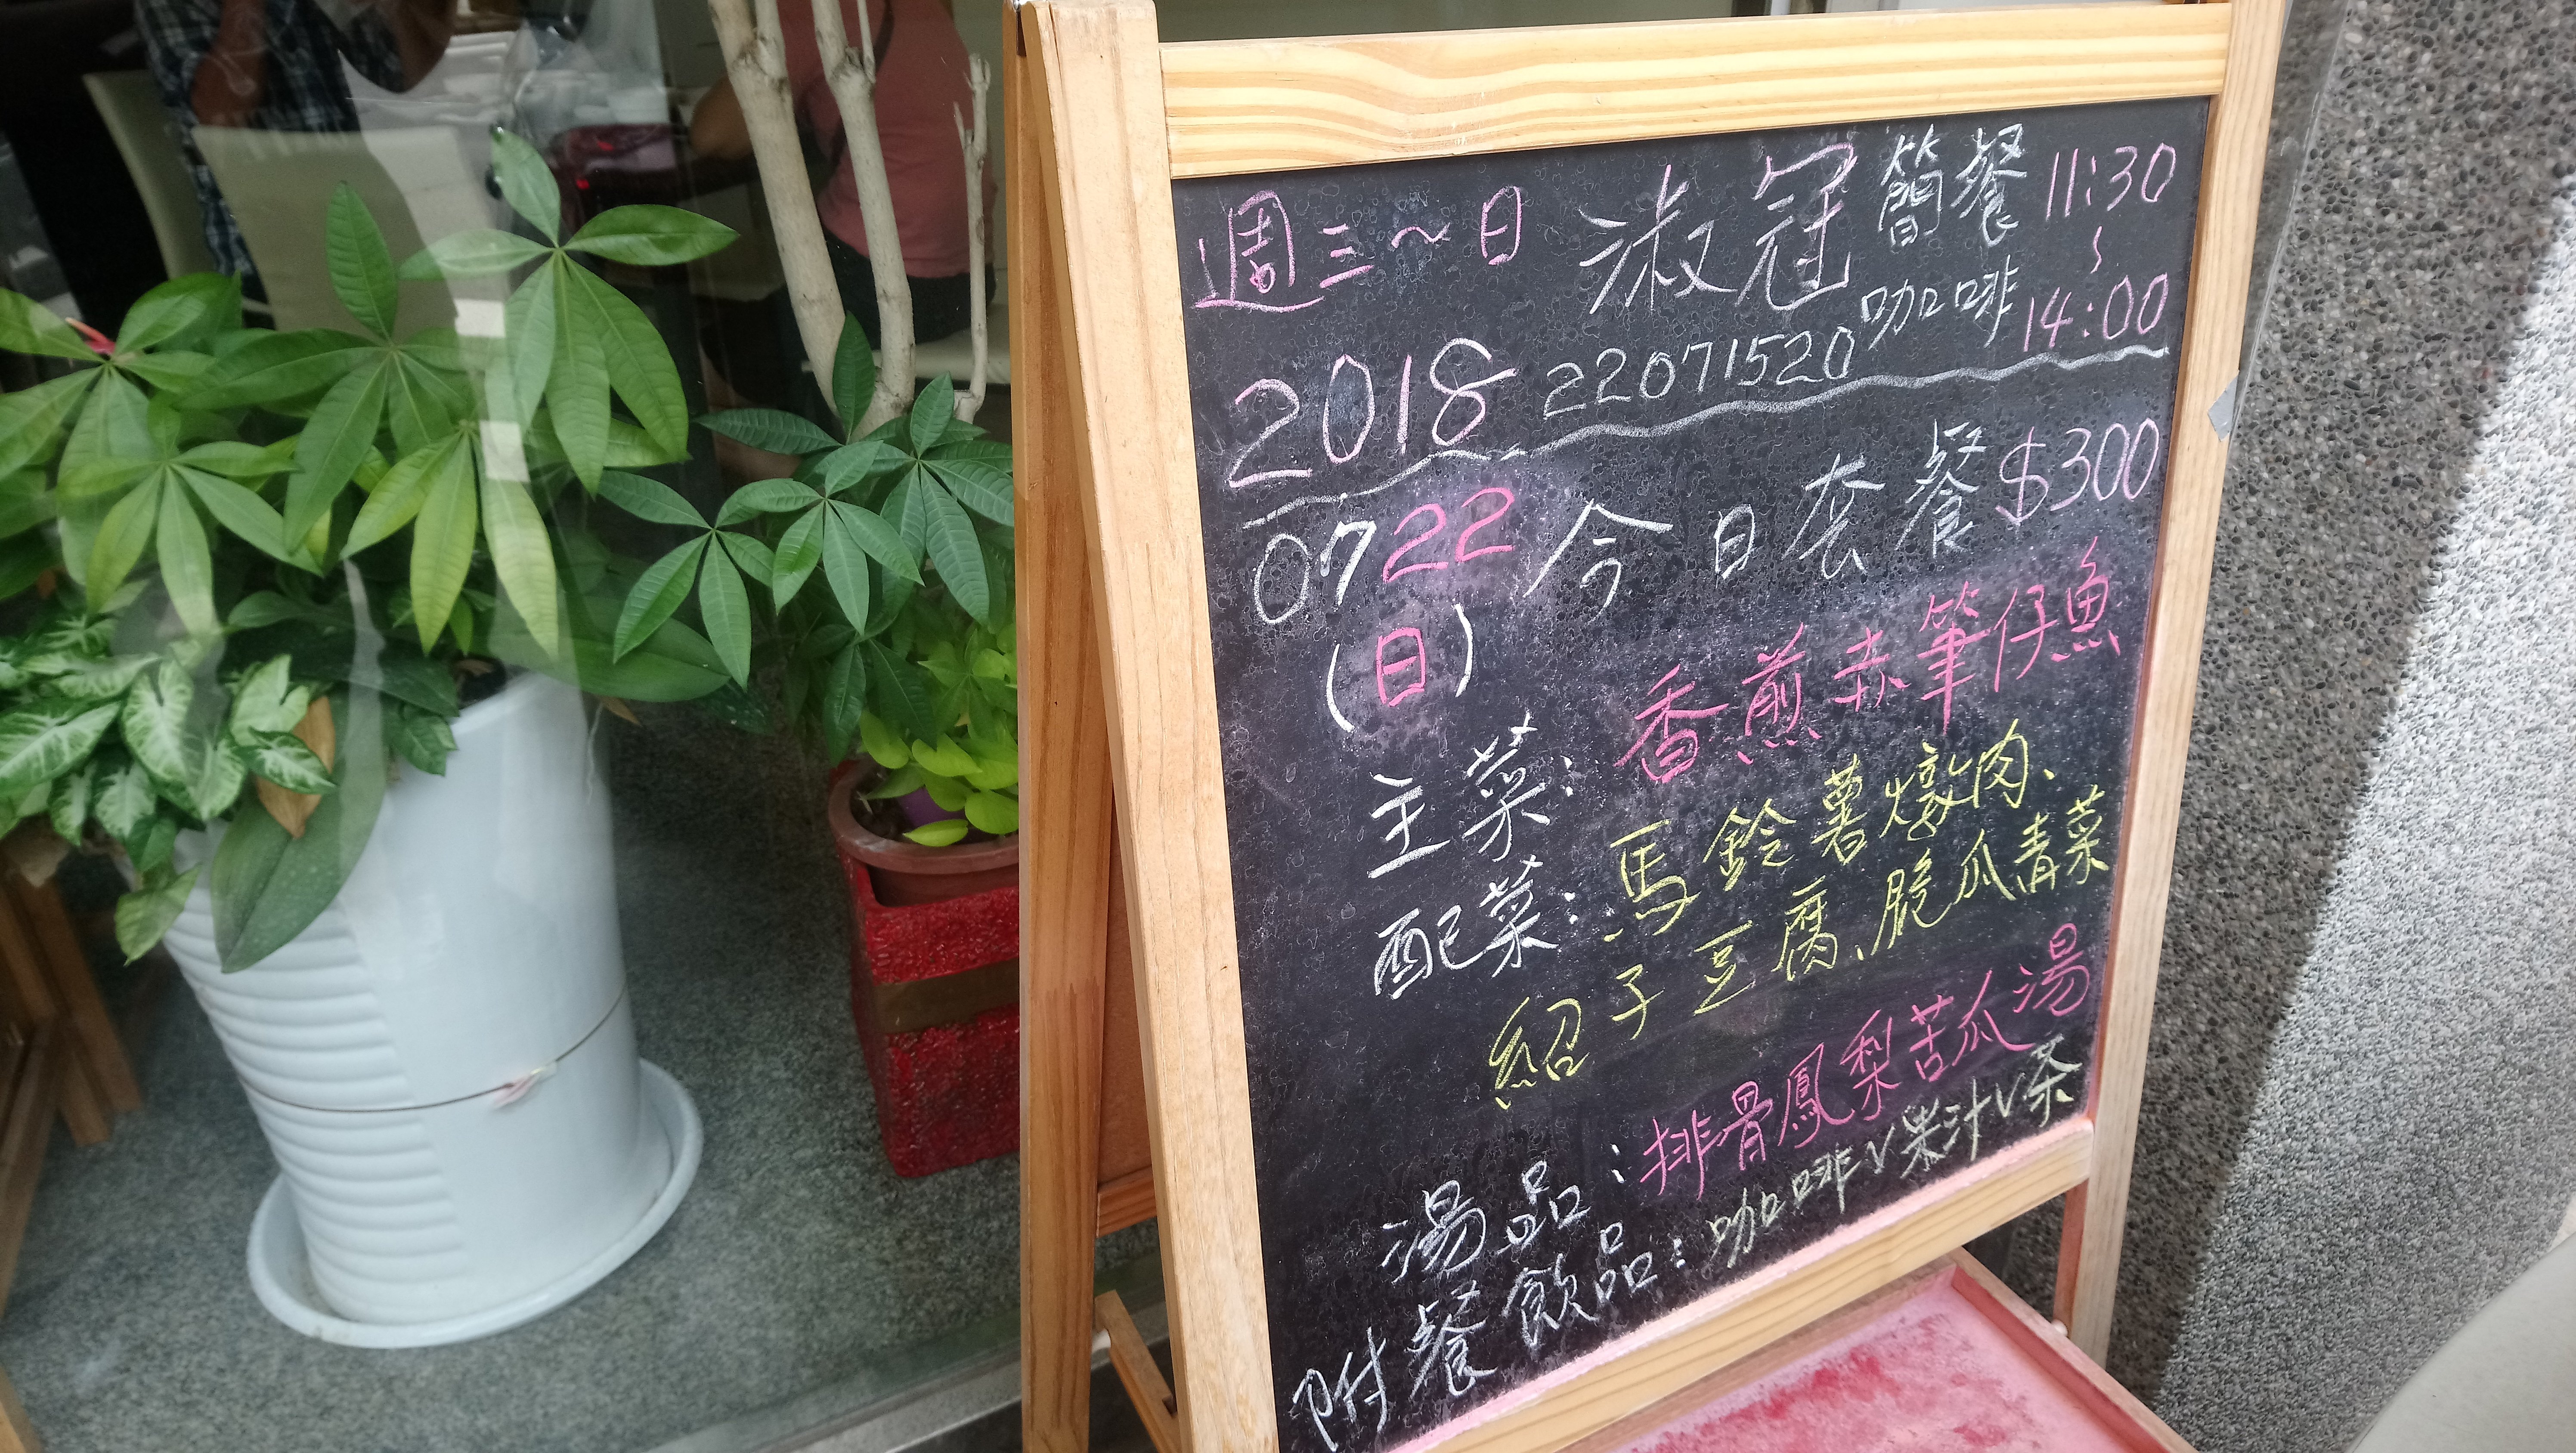 週三～日 淑冠 簡餐 咖啡 11:30～14:00
2018 22071520
0722 今日套餐$300
(日)
主菜：香煎赤筆仔魚
配菜：馬鈴薯燉肉、
紹子豆腐、脆瓜青菜
湯品：排骨鳳梨苦瓜湯
附餐飲品：咖啡V果汁V茶